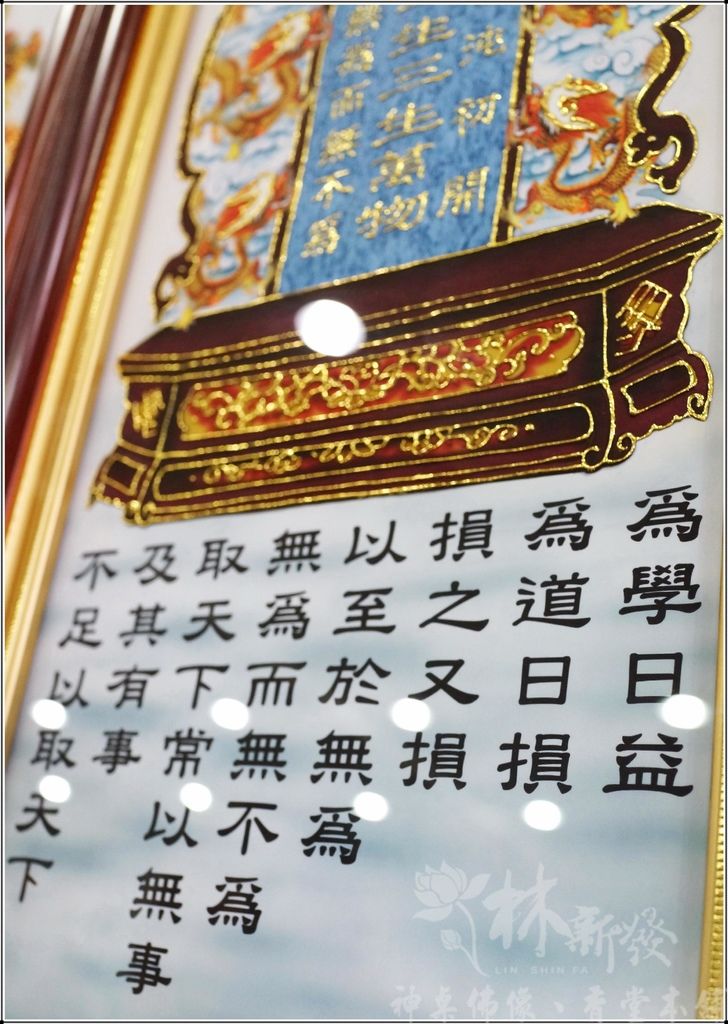 初開
生三生萬物
爲而無不爲
爲學日益
爲道日損
損之又損
以至於無爲
無爲而無不爲
取天下常以無事
及其有事
不足以取天下
林新發
LIN SHIN FA
神桌佛像、香堂本